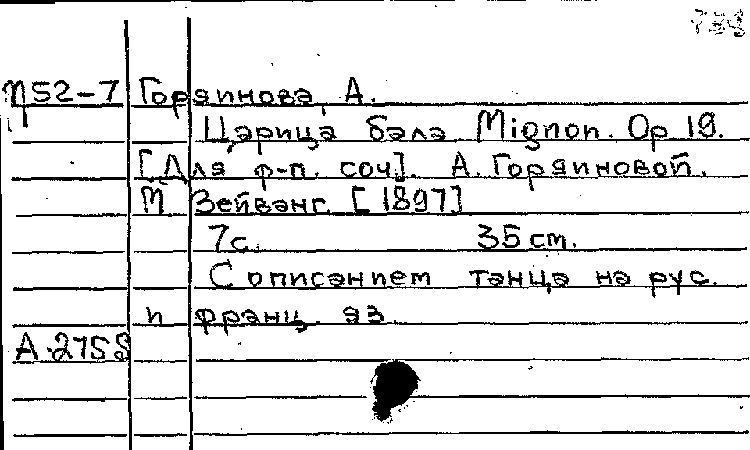 П52-7 Горяинова, А.
Царица бала. Mignon. Op 19.
[Для ф-п. соч]. А. Горяиновой.
М Зейванг. [1897]
7с. 35 cm.
С описанием танца на рус.
и франц. яз.
А.2758